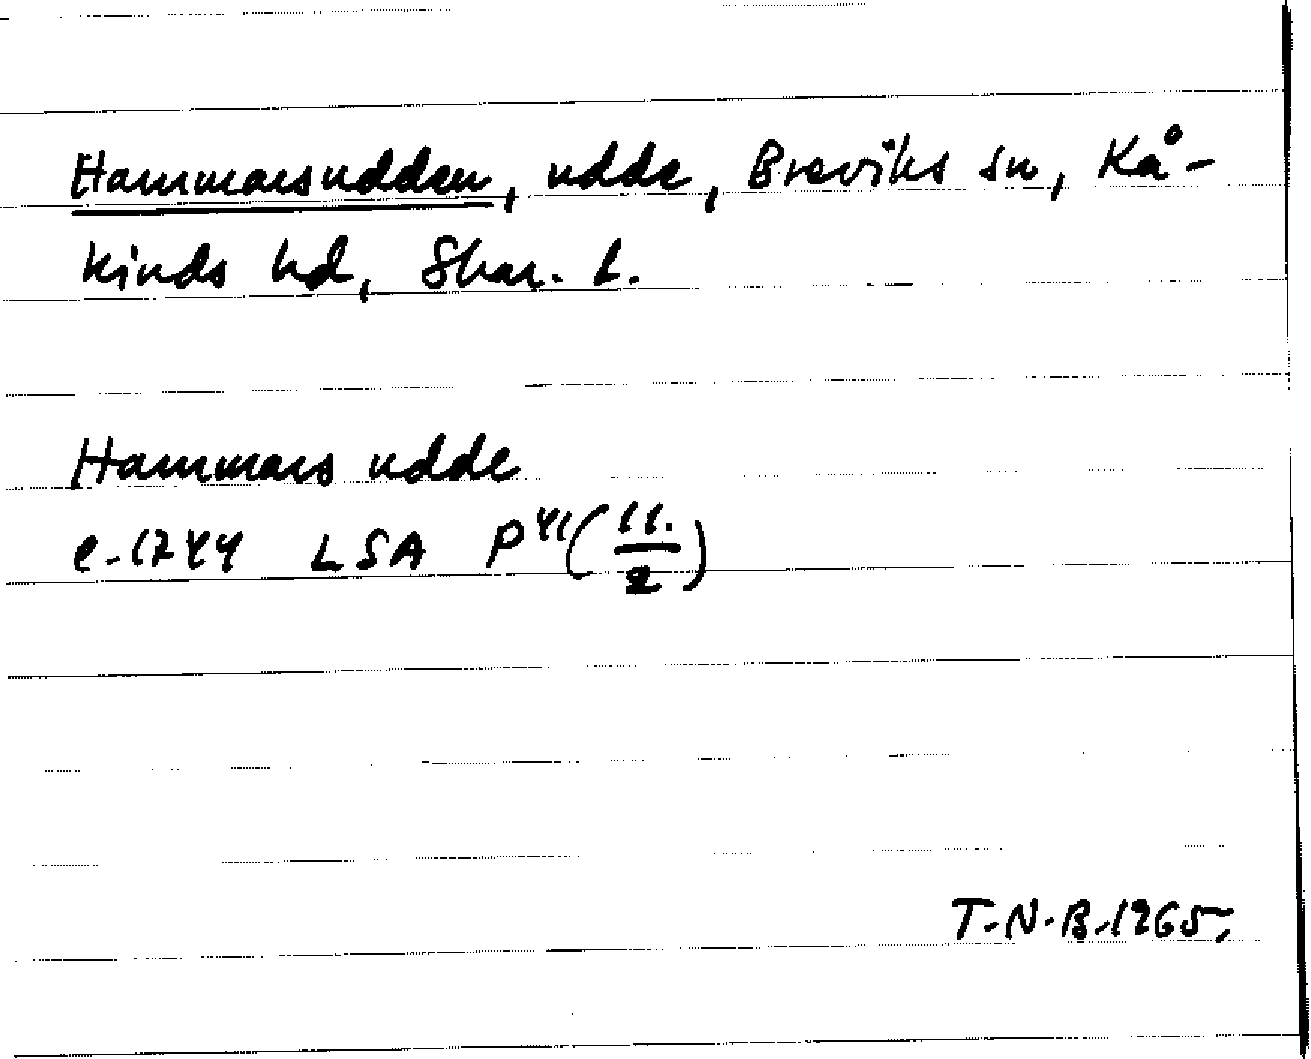 Hammarsudden, udde, Breviks sn, Kå-
kinds hd, Skar. l.
Hammars udde
e. 1744 LSA P 41 (11./2)
T.N.B. 1965.